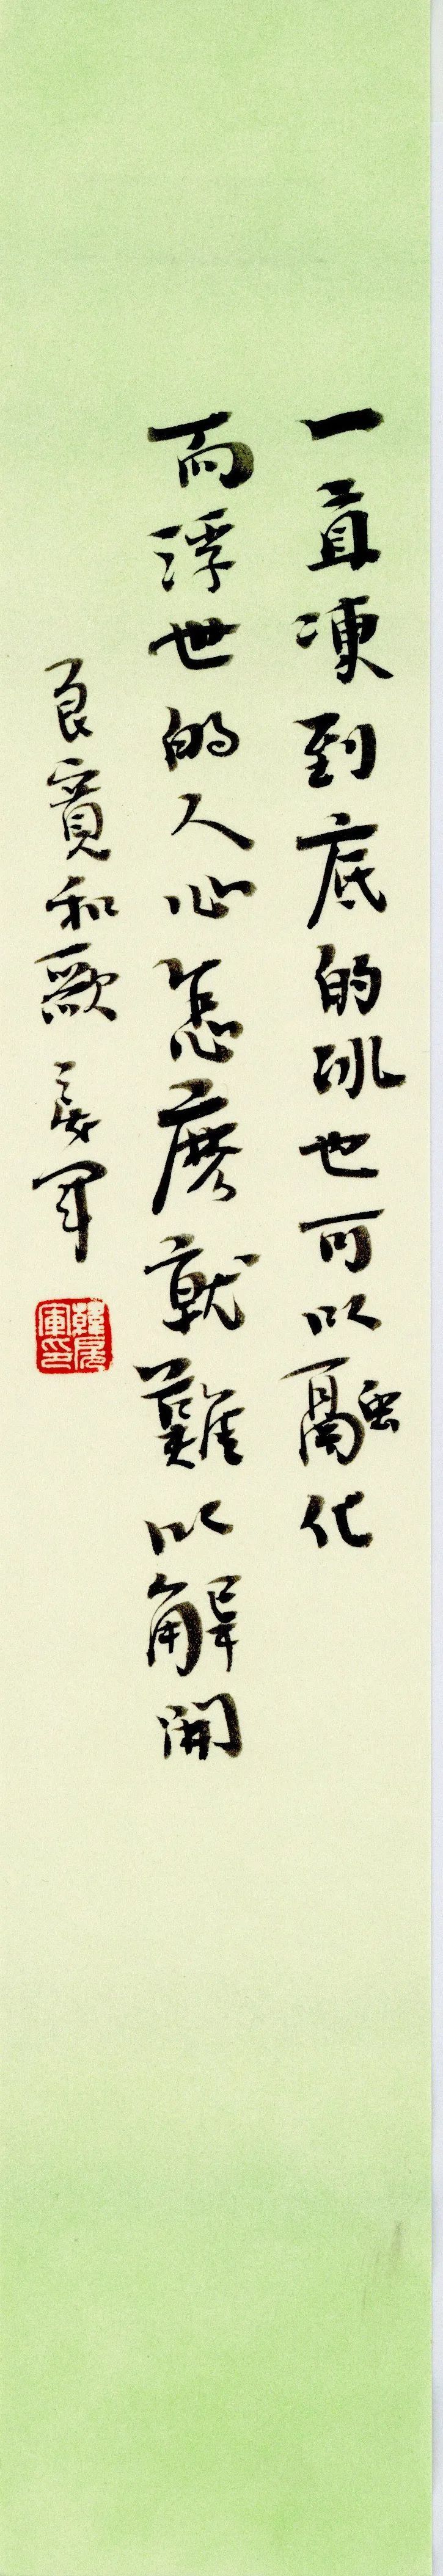 一直凍到底的冰也可以融化
而浮世的人心怎麼就難以解開
良寬和歌 軍
軍印